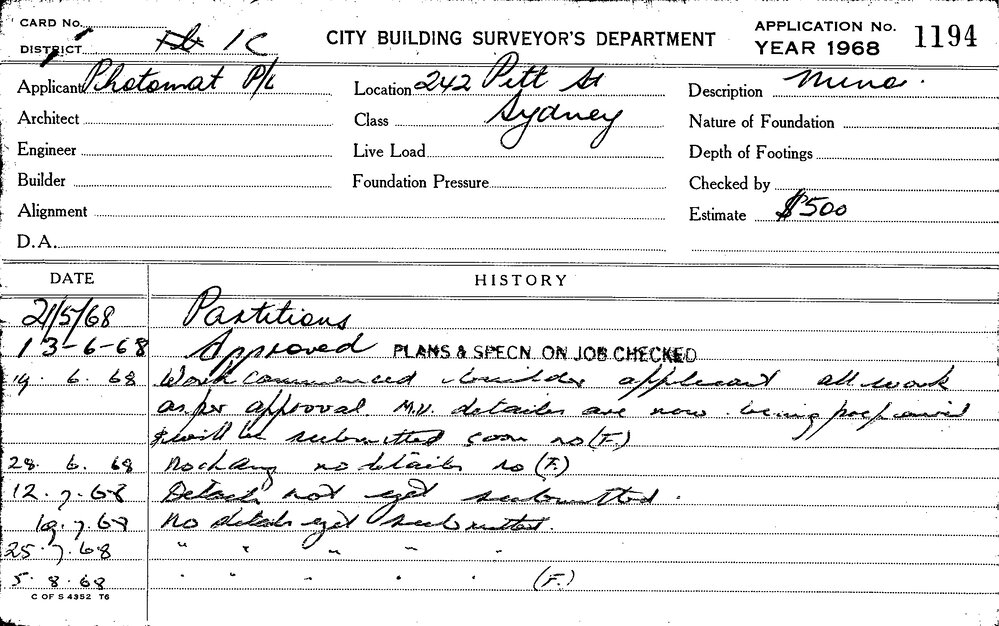 CARD No.
DISTRICT 1C
CITY BUILDING SURVEYOR'S DEPARTMENT
APPLICATION No. 1194
YEAR 1968
Applicant Photomat P/L
Location 242 Pitt St
Sydney
Description Minor.
Architect
Class
Nature of Foundation
Engineer
Live Load
Depth of Footings
Builder
Foundation Pressure
Checked by
Alignment
Estimate $500
D.A.
DATE HISTORY
21/5/68 Partitions
13-6-68 Approved PLANS & SPECN. ON JOB CHECKED
19. 6. 68 Work commenced builder applicant all work
as per approval. M.V. details are now being prepared
& will be submitted soon no (F.)
28. 6. 68 No change no details no (F.)
12. 7. 68 Details not yet submitted.
19. 7. 68 No details yet submitted.
25. 7. 68 " " " " "
5. 8. 68 " " " " " (F.)
C OF S 4352 T6